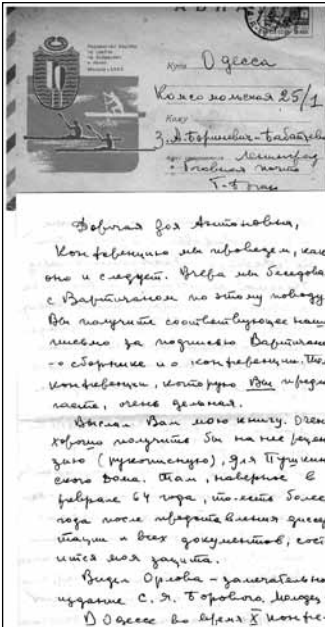 АВИА
Куда Одесса
Комсомольская 25/1
Кому
З. А. Борщевич-Бабайцевой
Ленинград
Главная почта
Дорогая Зоя Антоновна,
Конференцию мы проведем, как
оно и следует. Вчера мы беседова
с Вартичаном по этому поводу
Вы получите соответствующее наш
письмо за подписью Вартичана
о сборнике и о конференции. Тем
конференции, которую Вы предл
гаете, очень дельная.
Выслал Вам мою книгу. Очен
хорошо получить бы на нее реценз
зию (рукописную), для Пушкин
ского Дома. Там, наверное в
феврале 64 года, то-есть более
года после представления диссер
тации и всех документов, сост
ится моя защита.
Видел Орлова - замечательно
издание С. Я. Борового, Молодец
В Одессе во время X конфе